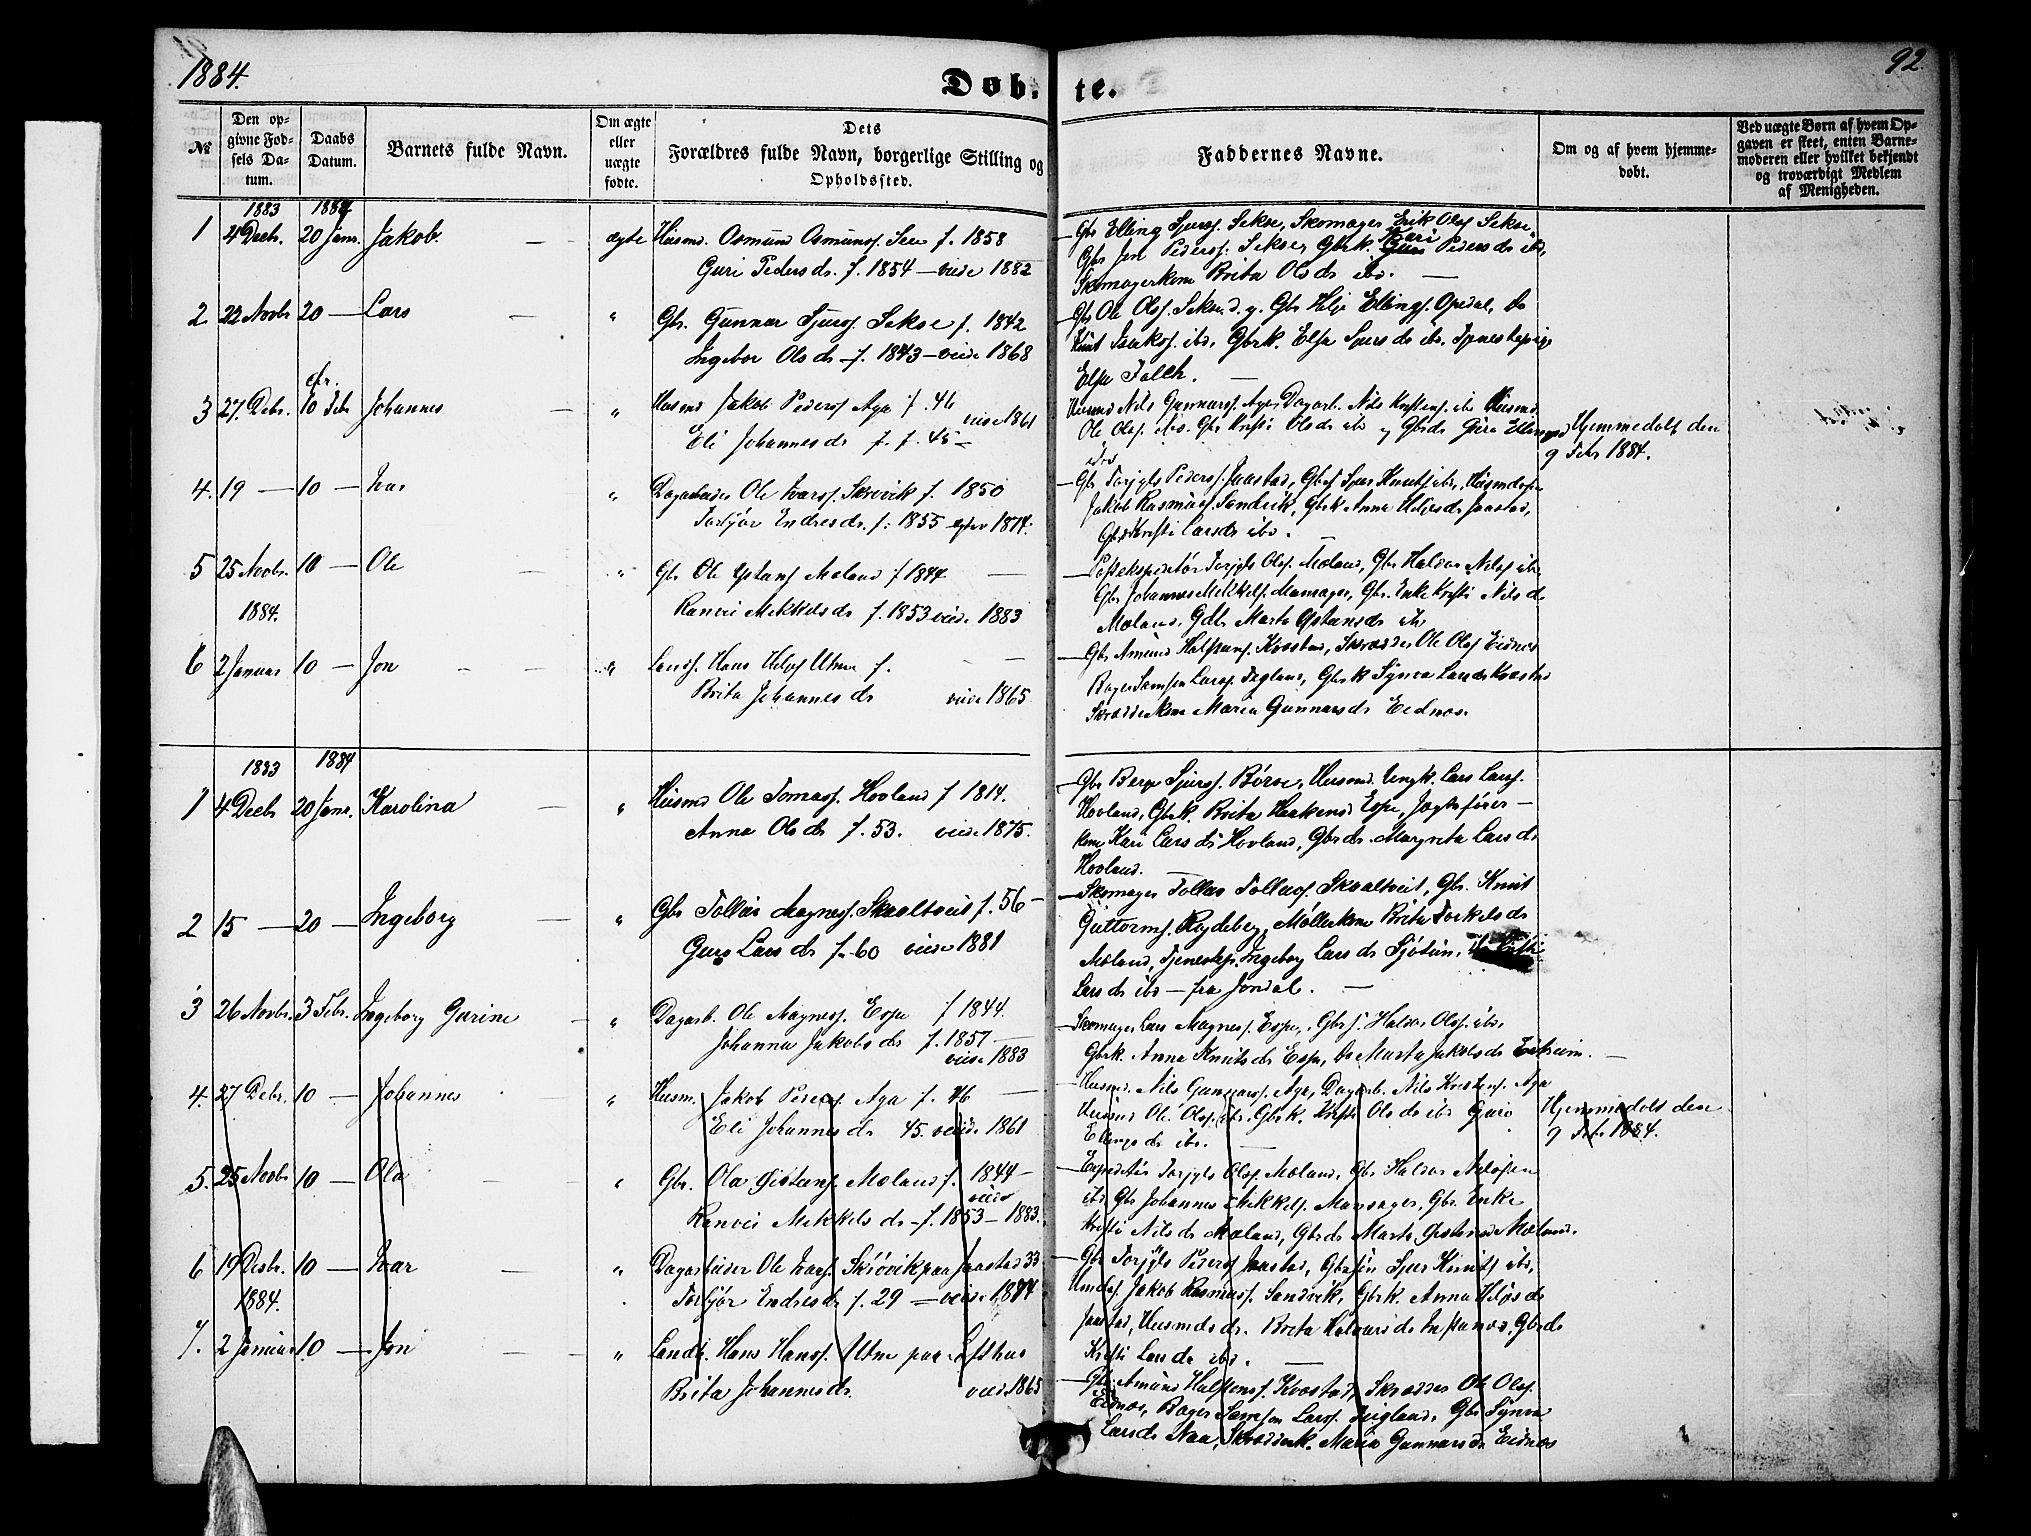 1884.
92.
Døbte.
№
Den opgivne Fødsels Datum.
Daabs Datum.
Barnets fulde Navn.
Om ægte eller uægte fødte.
Dets Forældres fulde Navn, borgerlige Stilling og Opholdssted.
Faddernes Navne.
Om og af hvem hjemmedøbt.
Ved uægte Børn af hvem Opgaven er skeet, enten Barnemoderen eller hvilket bekjendt og troværdigt Medlem af Menigheden.
1883 1884
1 4 Decb. 20 Janr. Jakob — ægte Husmd. Osmund Osmunds. f. 1858
Guri Pedersdr. f. 1854 — viede 1882
Gbr Elling Sjurss. Sekse, Skomager Erik Olss. Sekse,
Gbr Jon Pederss. Sekse, Gbrk. Kari Pedersdr ibd,
Skomagerkone Brita Olsdr ibd. —
2 22 Novbr 20 — Lars — " Gbr. Gunnar Sjurss. Sekse f. 1842
Ingebor Olsdr f. 1843 — viede 1868
Gbr Ole Olss. Sekse d. y. Gbr Helje Ellings. Opedal, do
Knut Isaks. ibd, Gbrk. Elsa Sjursdr ibd. Tjenestepige
Elsa Falch. —
3 27. Debr. 10 Febr Johannes — " Husmd Jakob Peders Aga f. 46
Eli Johannesdr f. 45 — viede 1861
Husmd Nils Gunnars. Aga, Dagarb. Nils Kristens. ibd Husmd.
Ole Olss. ibd. Gbr Kristi Olsdr ibd og Gbrdr Guro Ellingsd
ibd
Hjemmedøbt den
9 Febr 1884.
4. 19 — 10 — Ivar " Dagarbeider Ole Ivarss. Skrøvik f. 1850
Torbjør Endresdr. f. 1855 viede 1874.
Gbr Torjyls Peders. Jaastad, Gbrs Sjur Knuts ibd,
Jakob Rasmuss. Sandvik, Gbrk Anna Heljesdr Jaastad,
Gbrdr Kristi Larsdr ibd. —
5 25 Novbr. 10 — Ole — " Gbr Ole Østens Mæland f 1844 —
Ranvei Mikkelsdr f. 1853 viede 1883
Postekspeditør Torjyls Olss. Mæland, Gbr Haldor Nilss ibd
Gbr Johannes Mikkels. Mannsager, Gbr. Enke Kristi Nilsdr
Mæland, Gdbr Marta Østensdr ibd
1884.
6 2 Januar 10 — Jon — " Landh. Hans Utne f.
Brita Johannesdr viede 1865
Gbr Amund Halstens. Kvæstad, Skrædder Ole Olss Eidnes
Bager Samson Larss. Tegland, Gbrk Synva Larsdr Kvæstad
Skrædderkone Maria Gunnarsdr Eidnes.
1883 1884
1 4 Decbr 20 Janr. Karolina — " Husmd Ole Tomass. Hovland f 1814.
Anna Olsdr f. 53. viede 1875.
Gbr Berge Sjurss. Børve, Husmd. Ungk. Lars Larss.
Hovland, Gbrk. Brita Haakensd Espe, Jagtefører-
kone Kari Larsdr Hovland, Gbrdr. Margreta Larsdr
Hovland. —
2 15 — 20 — Ingeborg — " Gbr Tollev Magness. Skaaltveit f. 56 —
Guro Larsdr f. 60 viede 1881
Skomager Tollav Tollevs. Skaaltveit, Gbr. Knut
Guttorms. Rogdeberg, Møllerkone Brita Torkelsdr
Mæland, Tjenestep. Ingeborg Larsdr Sjøtun,
Larsdr ibd — fra Jondal. —
3 26 Novbr. 3 Febr. Ingeborg Gurine — " Dagarb. Ole Magness. Espe f 1844.
Johanna Jakobsdr f. 1857 —
viede 1883
Skomager Lars Magness. Espe, Gbrs. Haldor Olss. ibd,
Gbrk. Anna Knutsdr Espe, do Marta Jakobsdr Eitrheim. —
4. 27 Debr. 10 — Johannes — " Husm. Jakob Peders. Aga f. 46 —
Eli Johannesdr 45. viede 1861
Husmd. Nils Gunnars. Aga, Dagarb. Nils Kristens. Aga
Husmd Ole Olss. ibd, Gbrk. Kristi Olsdr ibd Guro
Ellingsdr ibd. —
Hjemmedøbt den
9 Febr 1884.
5. 25 Novbr 10 — Ola — " Gbr. Ola Østens. Mæland f. 1844 —
viede
Ranvei Mikkelsdr f. 1853 — 1883.
Expeditør Torjyls Olss. Mæland, Gbr Haldor Nilssen
ibd Gbr Johannes Mikkels. Mansager, Gbr. Enke
Kristi Nilsdr Mæland, Gbrdr Marta Østensdr Mæland.
6 19 Decbr. 10 — Ivar — " Dagarbeider Ole Ivars. Skrøvik paa Jaastad 33
Torbjør Endresdr f. 29 — viede 1874
Gbr Torjyls Peders Jaastad, Gbrsøn Sjur Knuts ibd,
Jakob Rasmuss. Sandvik, Gbrk. Anna Heljesdr
Jaastad, Husmdsdr. Brita Gbrdr
Kristi Larsdr ibd. —
1884.
7. 2 Januar 10. — Jon — " Landh. Hans Hanss. Utne paa Lofthus
Brita Johannesdr. viede 1865
Gbr. Amund Halstens. Kvæstad, Skrædder Ole Olss.
Eidnes, Bager Samson Larss. Tegland, Gbr Synva
Larsdr Naa, Skrædderk. Maria Gunnarsdr Eidnes